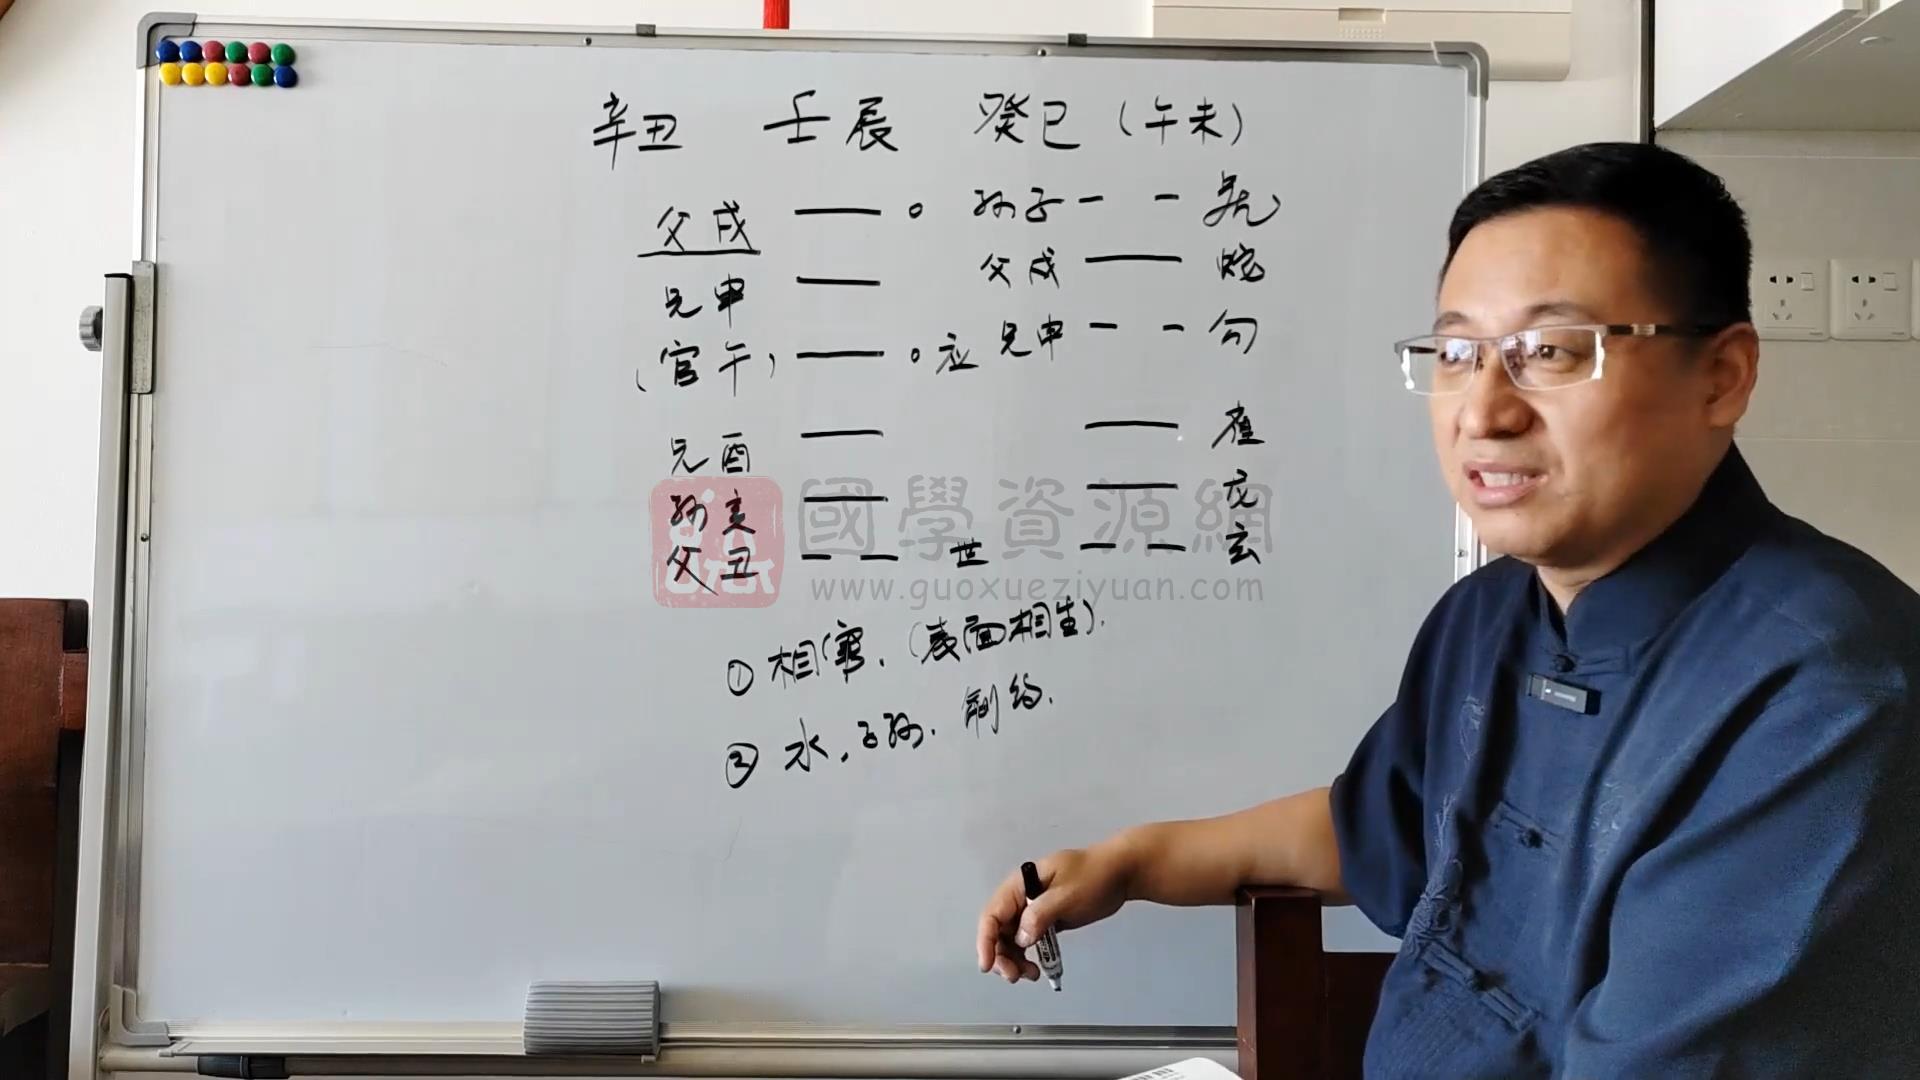 辛丑 壬辰 癸巳（午未）
父戌 孙子 虎
兄申 父戌 蛇
（官午） 应 兄申 勾
兄酉 雀
孙亥 龙
國學資源網
父丑 世 玄
www.guoxueziyuan.com
①相害.（表面相生）.
②水.子孙.制约.